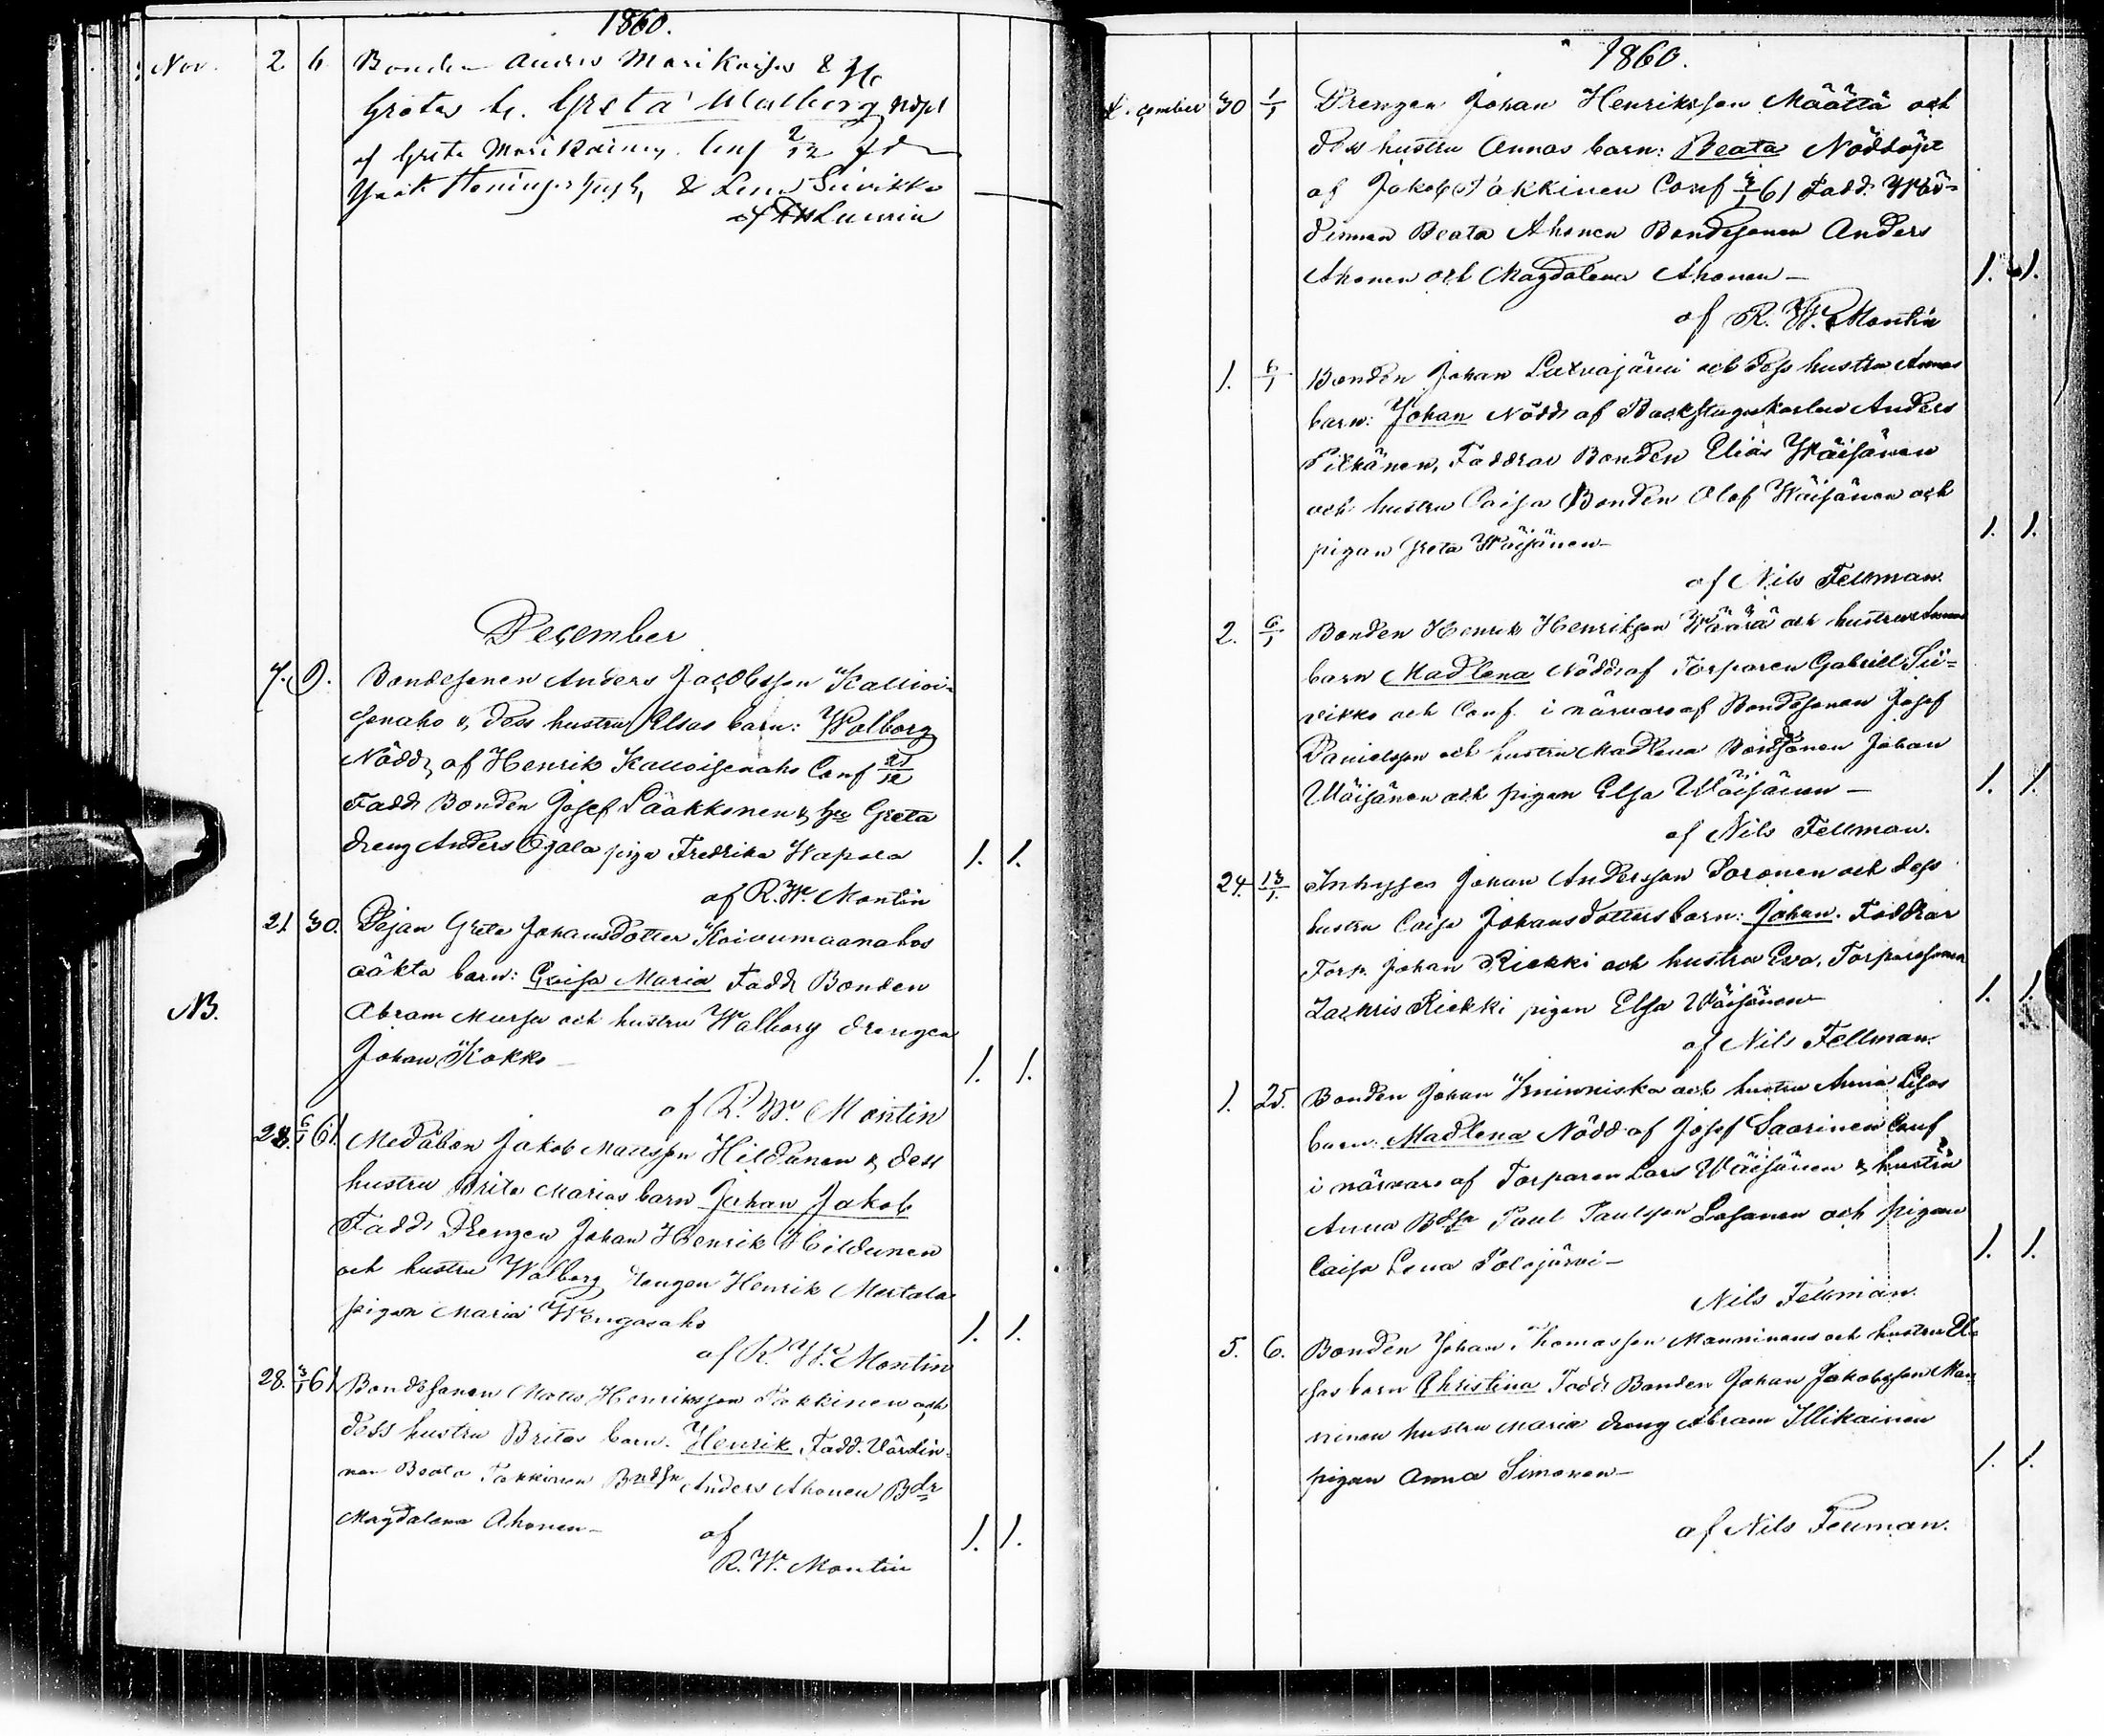 1860.
Nov. 2 6 Bonden Anders &
Gretas b. Greta Walborg ndpt
af Greta Conf 2/12 fdr
& Lena Siivikko
af Lucurin
December
7. 9. Bondesonen Anders Jacobsson Kallioi-
senaho & dess hustru Elsas barn: Walborg
Nödd. af Henrik Kallioisenaho Conf 25/12
Fadd. Bonden Josef Pääkkönen & hu Greta
dreng Anders Ojala piga Fredrika Wapola
1. 1.
af R. W. Montin
21 30. Pigan Greta Johansdotter Koivumaanahos
oäkta barn: Caisa Maria Fadd. Bonden
NB. Abram Mursu och hustru Walborg drengen
Johan Kokko – 1. 1.
af R. W. Montin
28. 6/1 61. Jakob Mattsson Hildunen & dess
hustru Brita Marias barn Johan Jakob
Fadd. Drengen Johan Henrik Hildunen
och hustru Walborg drengen Henrik Mertala
pigan Maria Wengasaho 1. 1.
af R. W. Montin
28. 3/1 61 Bondesonen Matts Henriksson Takkinen och
dess hustru Britas barn. Henrik. Fadd. Värdin-
nan Beata Takkinen Bndsn Anders Ahonen Bdr
Magdalena Ahonen – 1. 1.
af
R. W. Montin
1860.
December 30 1/1 Drengen Johan Henriksson Määttä och
dess hustru Annas barn: Beata Nöddöpt
af Jakob Takkinen Conf 3/1 61 Fadd. Wär-
dinnan Beata Ahonen Bondesonen Anders
Ahonen och Magdalena Ahonen – 1. 1.
af R. W. Montin
1. 6/1 Bonden Johan Latvajärvi och dess hustru Annas
barn: Johan Nödd. af Backstugukarlen Anders
Pitkänen, Faddrar Bonden Elias Wäisänen
och hustru Caisa Bonden Olof Wäisänen och
pigan Greta Wäisänen – 1. 1.
af Nils Fellman.
2. 6/1 Bonden Henrik Henriksson Wäärä och hustru Annas
barn Madlena Nödd. af Torparen Gabriell Sii-
vikko och Conf. i närvaro af Bondesonen Josef
Danielsson och hustru Madlena Bondsonen Johan
Wäisänen och pigan Elsa Wäisänen – 1. 1.
af Nils Fellman.
24. 13/1. Inhyses Johan Andersson Soronen och dess
hustru Caisa Johansdotters barn: Johan. Faddrar
Torp. Johan Riekki och hustru Eva, Torparesonen
Zachris Riekki pigan Elsa Wäisänen – 1. 1.
af Nils Fellman.
1. 25. Bonden Johan Kniivniska och hustru Anna Lisas
barn. Madlena Nödd. af Josef Saarinen Conf
i närvaro af Torparen Lars Wäisänen & hustru
Anna Bdsn Paul Paulsson Losanen och pigan
Caisa Lena Polojärvi – 1. 1.
Nils Fellman.
5. 6. Bonden Johan Thomasson Manninens och hustru El-
sas barn Christina Fadd. Bonden Johan Jakobsson Man-
ninen hustru Maria dreng Abram Illikainen
pigan Anna Simonen – 1. 1.
af Nils Fellman.